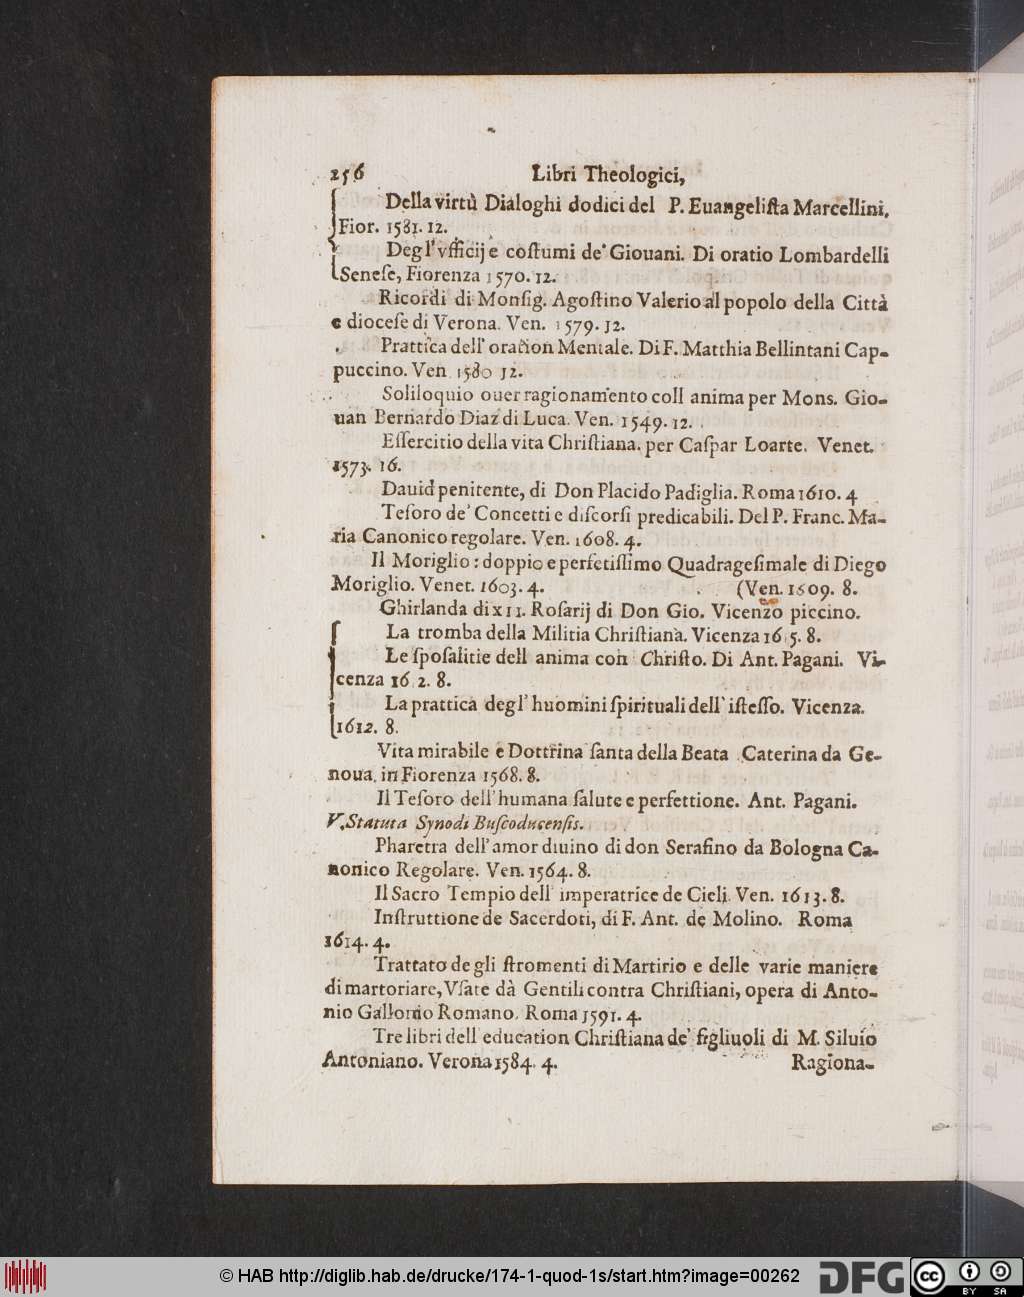 256 Libri Theologici,
Della virtù Dialoghi dodici del P. Euangeliſta Marcellini,
Fior. 1581. 12.
Degl'vfficij e coſtumi de' Giouani. Di oratio Lombardelli
Seneſe, Fiorenza 1570. 12.
Ricordi di Monſig. Agoſtino Valerio al popolo della Città
e dioceſe di Verona. Ven. 1579. 12.
Prattica dell' oration Mentale. Di F. Matthia Bellintani Cap-
puccino. Ven 1580 12.
Soliloquio ouer ragionamento coll anima per Mons. Gio-
uan Bernardo Diaz di Luca. Ven. 1549. 12.
Eſſercitio della vita Chriſtiana. per Caſpar Loarte. Venet.
1573. 16.
Dauid penitente, di Don Placido Padiglia. Roma 1610. 4
Teſoro de' Concetti e diſcorſi predicabili. Del P. Franc. Ma-
ria Canonico regolare. Ven. 1608. 4.
Il Moriglio : doppio e perfetiſſimo Quadrageſimale di Diego
Moriglio. Venet. 1603. 4. (Ven. 1609. 8.
Ghirlanda di x11. Roſarij di Don Gio. Vicenzo piccino.
La tromba della Militia Chriſtiana. Vicenza 16 5. 8.
Le ſpoſalitie dell anima con Chriſto. Di Ant. Pagani. Vi-
cenza 16 2. 8.
La prattica degl' huomini ſpirituali dell' iſteſſo. Vicenza.
1612. 8.
Vita mirabile e Dottrina ſanta della Beata Caterina da Ge-
noua, in Fiorenza 1568. 8.
Il Teſoro dell' humana ſalute e perfettione. Ant. Pagani.
V. Statuta Synodi Buſcoducenſis.
Pharetra dell' amor diuino di don Serafino da Bologna Ca-
nonico Regolare. Ven. 1564. 8.
Il Sacro Tempio dell imperatrice de Cieli. Ven. 1613. 8.
Inſtruttione de Sacerdoti, di F. Ant. de Molino. Roma
1614. 4.
Trattato de gli ſtromenti di Martirio e delle varie maniere
di martoriare, Vſate dà Gentili contra Chriſtiani, opera di Anto-
nio Gallonio Romano. Roma 1591. 4.
Tre libri dell education Chriſtiana de' figliuoli di M. Siluio
Antoniano. Verona 1584. 4. Ragiona-
© HAB http://diglib.hab.de/drucke/174-1-quod-1s/start.htm?image=00262
DFG
cc BY SA